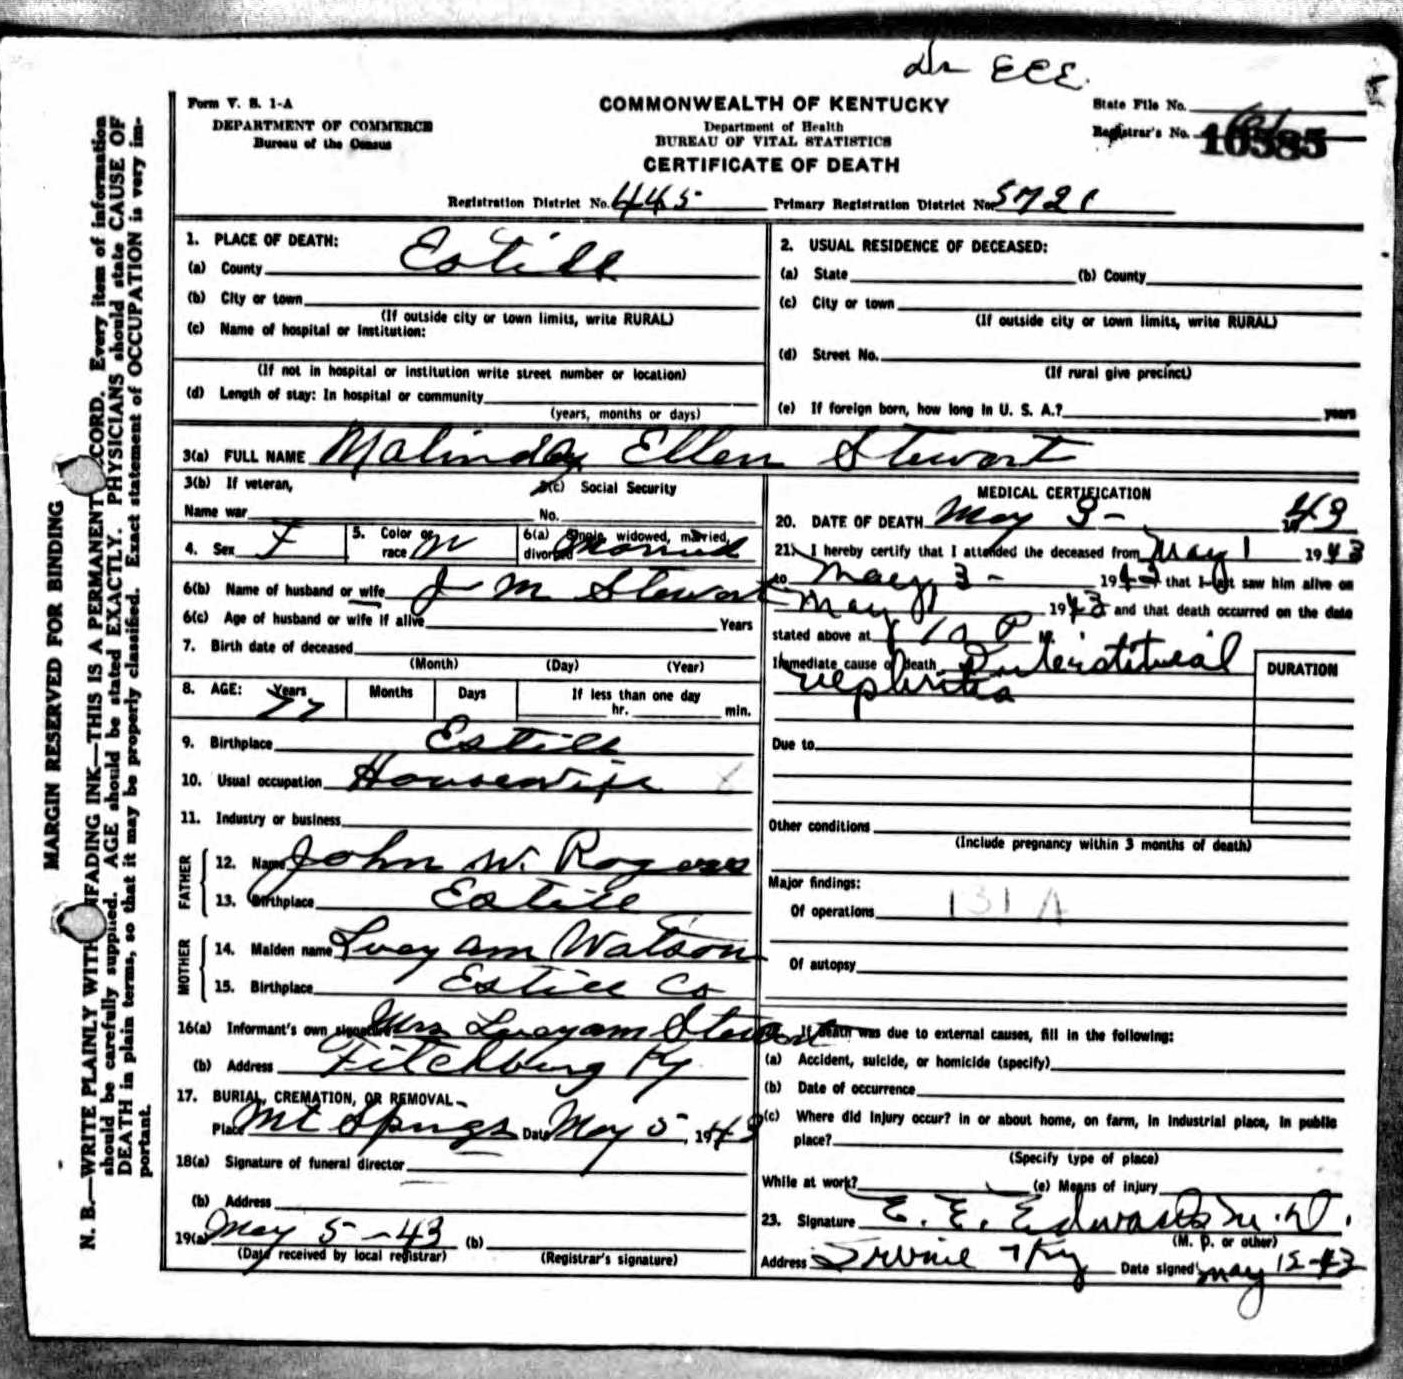 Dr ECE.
Form V. S. 1-A
DEPARTMENT OF COMMERCE
Bureau of the Census
COMMONWEALTH OF KENTUCKY
Department of Health
BUREAU OF VITAL STATISTICS
CERTIFICATE OF DEATH
State File No.
Registrar's No. 10585
Registration District No. 445 Primary Registration District No. 5721
MARGIN RESERVED FOR BINDING
N. B.—WRITE PLAINLY WITH UNFADING INK—THIS IS A PERMANENT RECORD. Every item of information
should be carefully supplied. AGE should be stated EXACTLY. PHYSICIANS should state CAUSE OF
DEATH in plain terms, so that it may be properly classified. Exact statement of OCCUPATION is very im-
portant.
1. PLACE OF DEATH:
(a) County Estill
(b) City or town
(If outside city or town limits, write RURAL)
(c) Name of hospital or institution:
(If not in hospital or institution write street number or location)
(d) Length of stay: In hospital or community
(years, months or days)
2. USUAL RESIDENCE OF DECEASED:
(a) State (b) County
(c) City or town
(If outside city or town limits, write RURAL)
(d) Street No.
(If rural give precinct)
(e) If foreign born, how long in U. S. A.? years
3(a) FULL NAME Malinda Ellen Stewart
3(b) If veteran,
Name war
3(c) Social Security
No.
4. Sex F
5. Color or
race W
6(a) Single, widowed, married,
divorced Married
6(b) Name of husband or wife J M Stewart
6(c) Age of husband or wife if alive Years
7. Birth date of deceased
(Month) (Day) (Year)
8. AGE: Years Months Days If less than one day
77 hr. min.
9. Birthplace Estill
10. Usual occupation Housewife
11. Industry or business
FATHER
12. Name John W. Rogers
13. Birthplace Estill
MOTHER
14. Maiden name Lucy ann Watson
15. Birthplace Estill Co
16(a) Informant's own signature Mrs Lucyann Stewart
(b) Address Fitchburg Ky
17. BURIAL, CREMATION, OR REMOVAL
Place Mt Springs Date May 5, 1943
18(a) Signature of funeral director
(b) Address
19(a) May 5-43 (b)
(Date received by local registrar) (Registrar's signature)
MEDICAL CERTIFICATION
20. DATE OF DEATH May 3- 1943
21. I hereby certify that I attended the deceased from May 1 1943
to May 3- 1943 that I last saw him alive on
May 1 1943 and that death occurred on the date
stated above at P M.
Immediate cause of death Interstitueal
nephritis
DURATION
Due to
Other conditions
(Include pregnancy within 3 months of death)
Major findings:
Of operations 131A
Of autopsy
If death was due to external causes, fill in the following:
(a) Accident, suicide, or homicide (specify)
(b) Date of occurrence
(c) Where did injury occur? in or about home, on farm, in industrial place, in public
place?
(Specify type of place)
While at work? (e) Means of injury
23. Signature E. E. Edwards M.D.
(M. D. or other)
Address Irvine Ky Date signed May 15-43